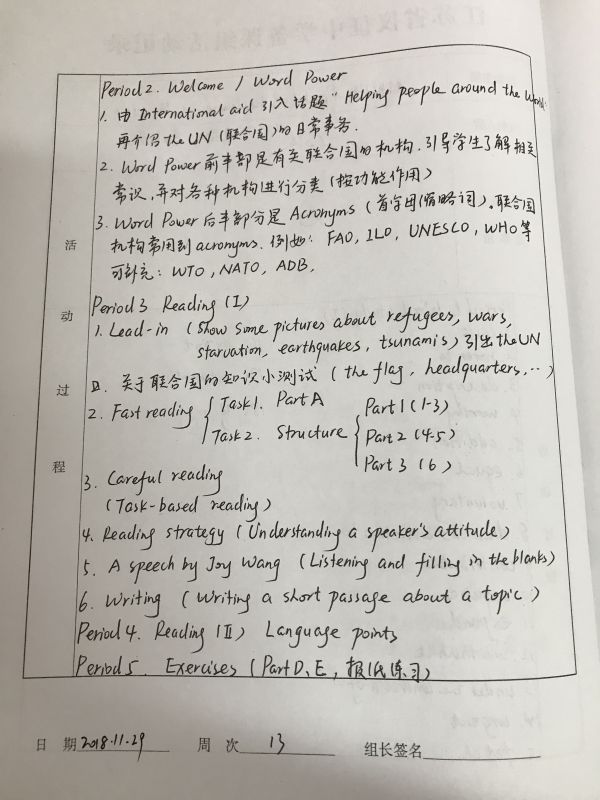 Period 2. Welcome / Word Power
1. 由 International aid 引入话题 "Helping people around the World.
再介绍 the UN (联合国) 的日常事务.
2. Word Power 前半部是有关联合国的机构. 引导学生了解相关
常识, 并对各种机构进行分类 (按功能作用)
3. Word Power 后半部分是 Acronyms (首字母缩略词)。联合国
机构常用到 acronyms. 例如: FAO, ILO, UNESCO, WHO 等
可补充: WTO, NATO, ADB.
Period 3 Reading (I)
1. Lead-in (show some pictures about refugees, wars,
starvation, earthquakes, tsunamis) 引出 the UN
关于联合国的知识小测试 (the flag, headquarters, ...)
2. Fast reading Task 1. Part A Part 1 (1-3)
Task 2. Structure Part 2 (4-5)
Part 3 (6)
3. Careful reading
(Task-based reading)
4. Reading strategy (Understanding a speaker's attitude)
5. A speech by Joy Wang (Listening and filling in the blanks)
6. Writing (Writing a short passage about a topic)
Period 4. Reading (II) Language points
Period 5. Exercises (Part D、E, 报纸练习)
活动过程
日 期 2018.11.29 周 次 13 组长签名